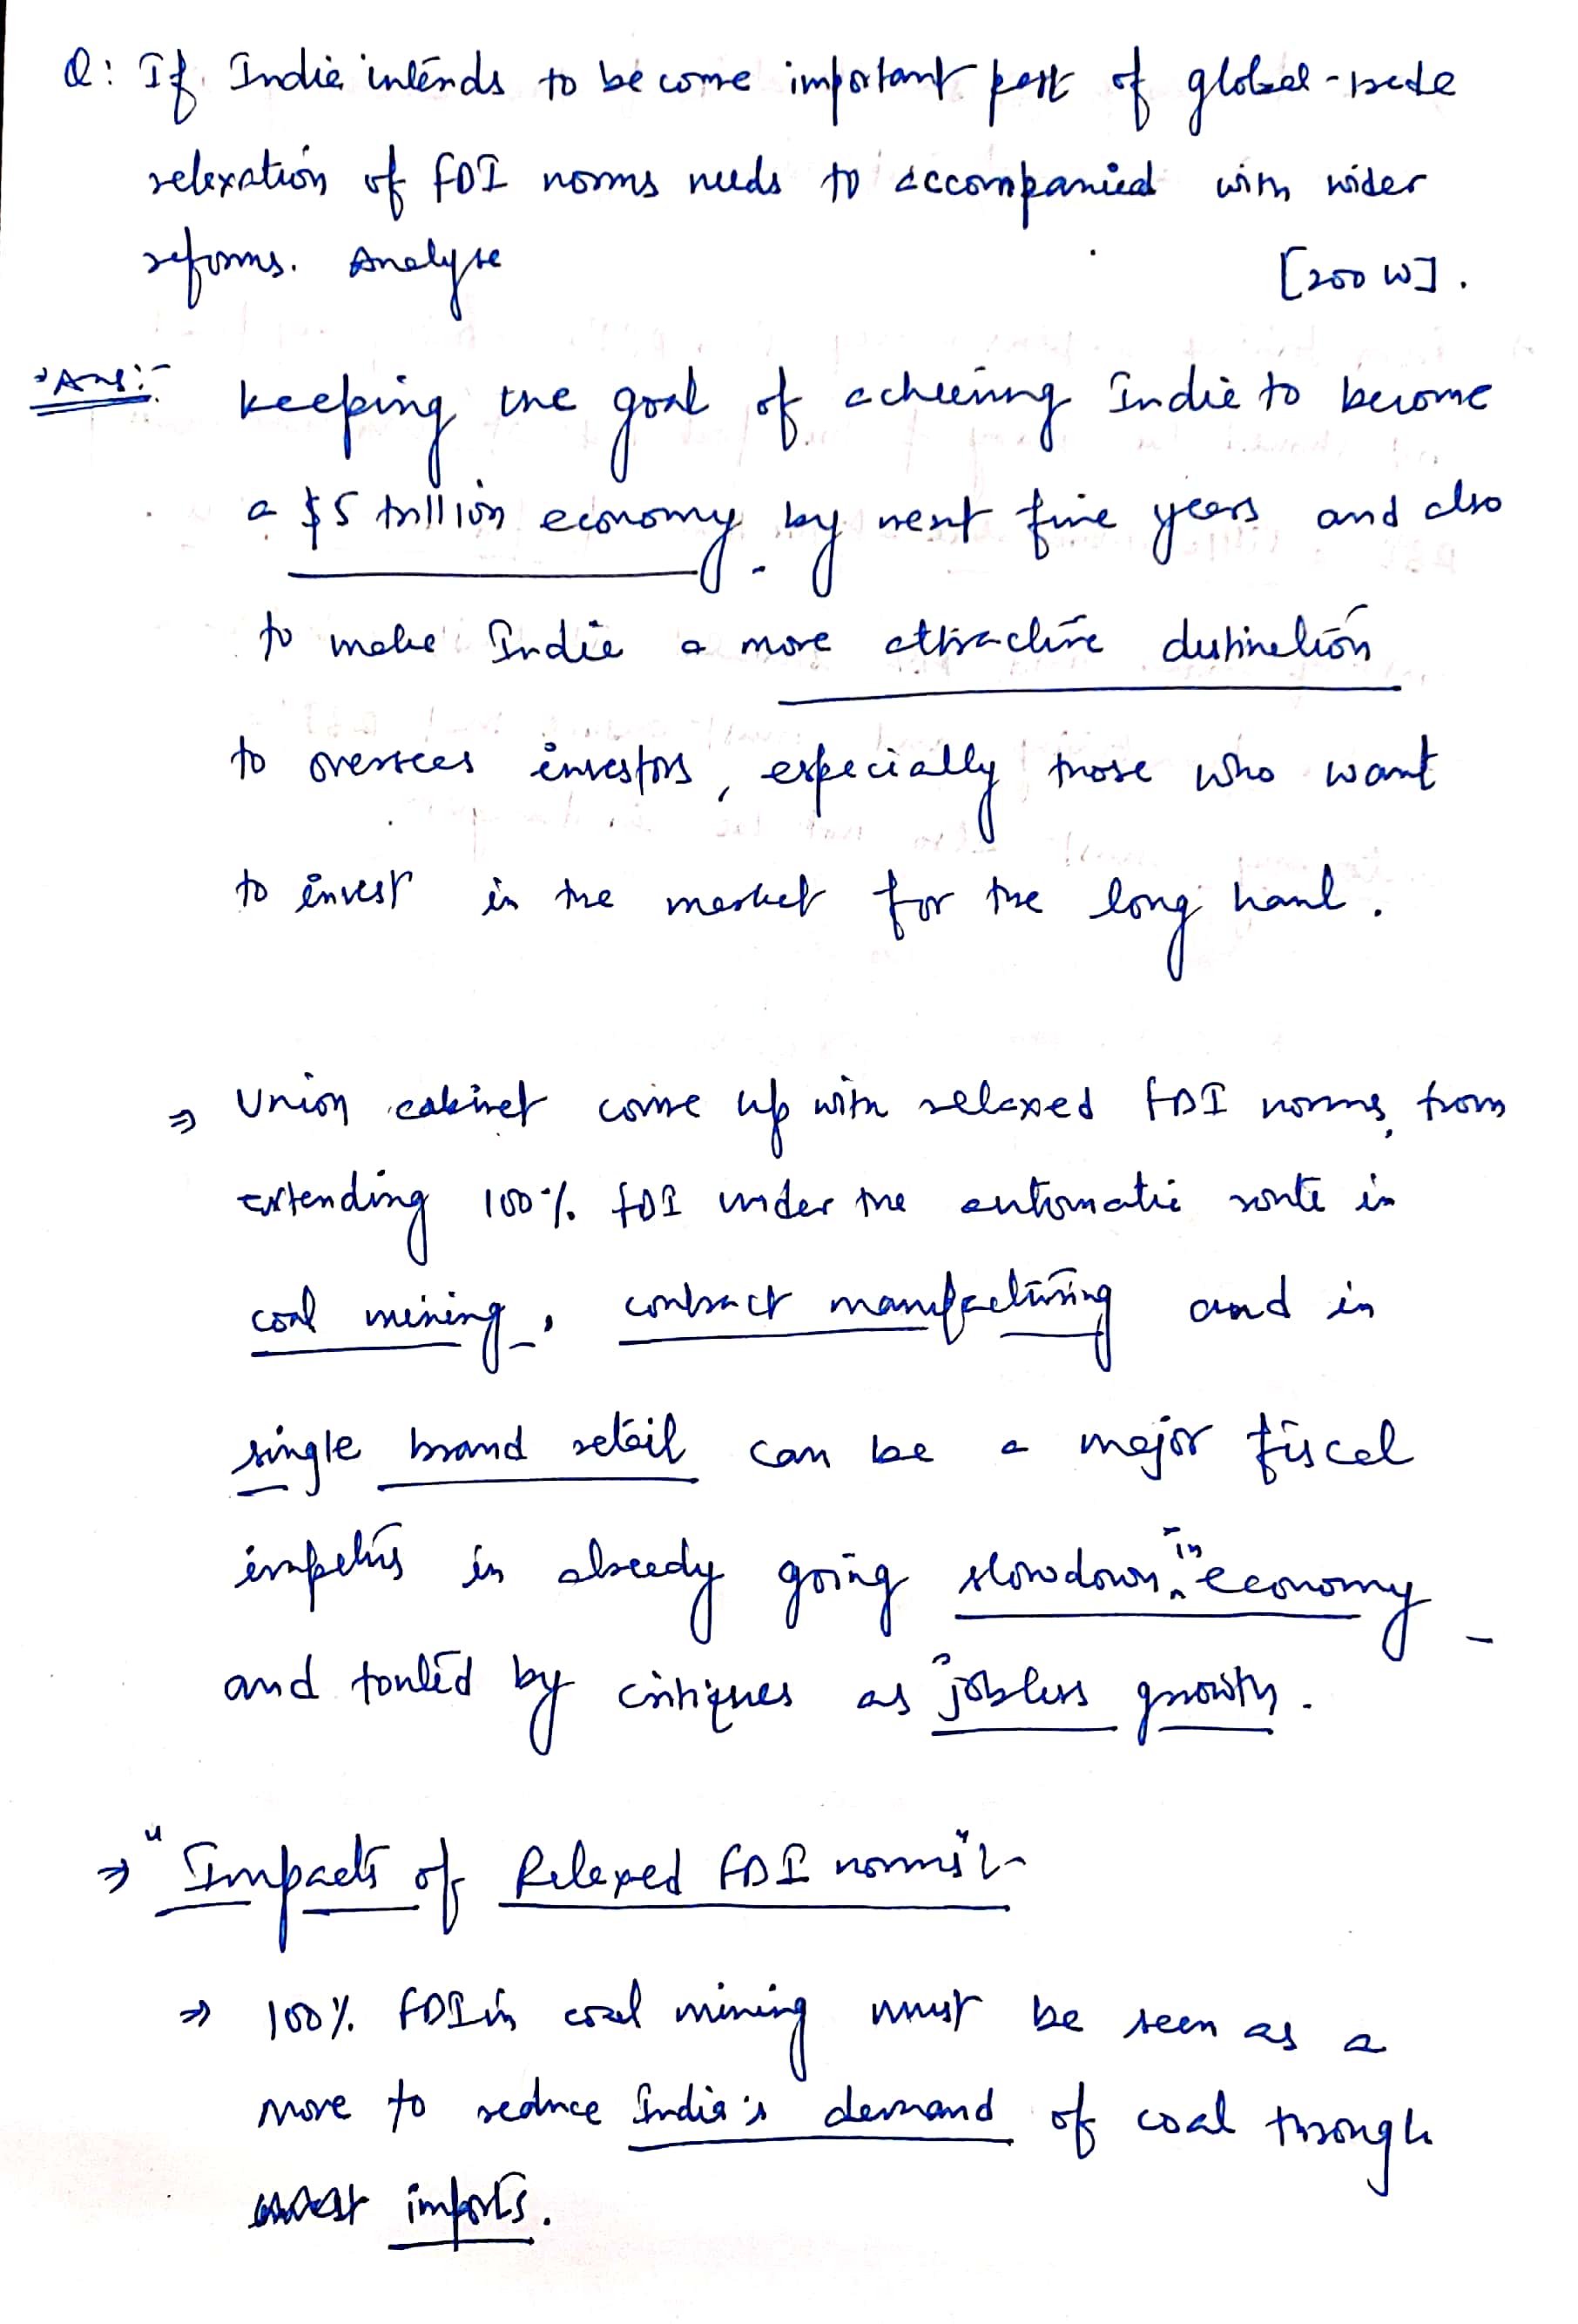 Q: If India intends to become important part of global-trade
relaxation of FDI norms needs to accompanied with wider
reforms. Analyse [200 W].
Ans:- Keeping the goal of acheiving India to become
a $5 trillion economy by next five years and also
to make India a more attractive destination
to overseas investors, especially those who want
to invest in the market for the long haul.
⇒ Union cabinet come up with relaxed FDI norms, from
extending 100% FDI under the automatic route in
coal mining, contract manufacturing and in
single brand retail can be a major fiscal
impetus in already going slowdown in economy
and touted by critiques as "jobless growth.
⇒ "Impacts of Relaxed FDI norms":-
⇒ 100% FDI in coal mining must be seen as a
move to reduce India's demand of coal through
imports.